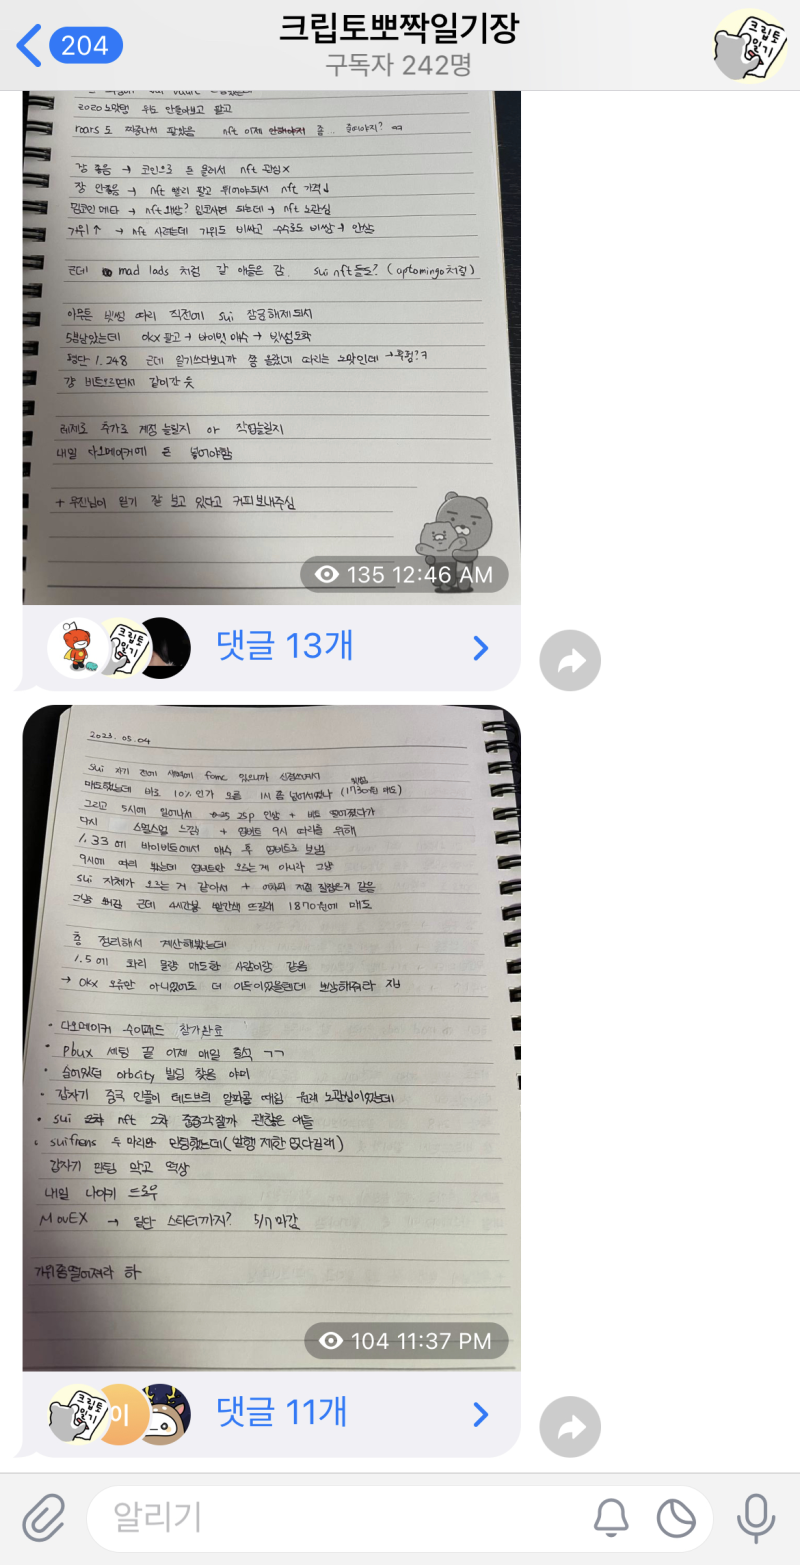 204
크립토뽀짝일기장
구독자 242명
크립토
일기
2020 노맛탱 위도 만들어보고 팔고
roars 도 짜증나서 팔았음 nft 이제 좀..
장 좋음 → 코인으로 돈 몰려서 nft 관심x
장 안좋음 → nft 빨리 팔고 튀어야되서 nft 가격↓
밈코인 메타 → nft 왜삼? 밈코사면 되는데 → nft 노관심
가위↑ → nft 사려는데 가위도 비싸고 수수료도 비쌈 → 안삼
근데 mad lads 처럼 갈 애들은 감. sui nft들도? (aptomingo처럼)
아무튼 빗썸 따리 직전에 sui 잠금해제되서
5분남았는데 okx 팔고 → 바이빗 매수 → 빗썸도착
평단 1.248 근데 일기쓰다보니까 쫌 올랐네 따리는 노맛인데
걍 비트오르면서 같이간 듯
레제로 추가로 계정 늘릴지 아 작업늘릴지
내일 다오메이커에 돈 넣어야함
+ 우진님이 일기 잘 보고 있다고 커피보내주심
135 12:46 AM
크립토
일기
댓글 13개
2023. 05. 04
sui 자기 전에 새벽에 fomc 있으니까 신경쓰여서
빗썸
매도했는데 바로 10% 인가 오름 1시 좀 넘어서였나 (1730원 매도)
그리고 5시에 일어나서 25bp 인상 + 비트 떨어졌다가
다시 스멀스멀 느낌 + 업비트 9시 따리를 위해
1.33 에 바이비트에서 매수 후 업비트로 보냄
9시에 따리 봤는데 업비트만 오르는게 아니라 그냥
sui 자체가 오르는 거 같아서 + 어차피 저점 잡은거 같음
그냥 근데 4시간봉 빨간색 뜨길래 1870원에 매도
총 정리해서 계산해봤는데
1.5에 화리 물량 매도한 사람이랑 같음
→ okx 오류만 아니었어도 더 이득이었을텐데 보상해줘라
• 다오메이커 수이패드 참가완료
• Pbux 세팅 끝 이제 매일 출석 ㄱㄱ
• 숨어있던 orbcity 빌딩 찾음 야미
• 갑자기 중국 인플이 테드브리 알파콜 때림 원래 노관심이었는데
• sui nft 2차 줍줍각잴까 괜찮은 애들
• suifrens 두 마리와 민팅했는데 (발행 제한 없다길래)
갑자기 민팅 막고 떡상
내일 나이키 드로우
MovEX → 일단 스타터까지? 5/17 마감
가위좀떨어져라 하
104 11:37 PM
크립토
일기
이
댓글 11개
알리기